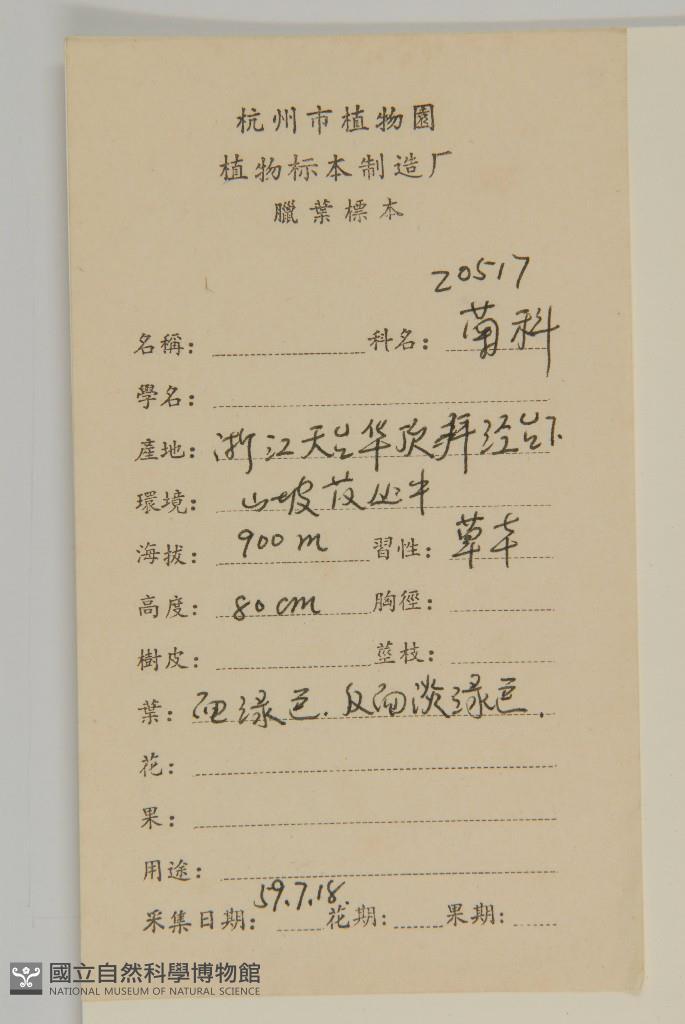 杭州市植物園
植物标本制造厂
臘葉標本
20517
名稱： 科名：菊科
學名：
產地：浙江天台华顶拜经台下
環境：山坡草丛中
海拔：900 m 習性：草本
高度：80 cm 胸徑：
樹皮： 莖枝：
葉：面绿色．反面淡绿色．
花：
果：
用途：
采集日期：59.7.18. 花期： 果期：
國立自然科學博物館
NATIONAL MUSEUM OF NATURAL SCIENCE